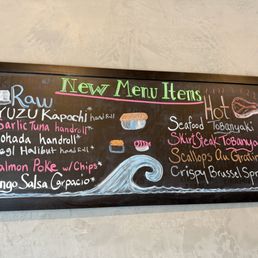 New Menu Items
Raw
YUZU Kapachi hand roll
Garlic Tuna handroll*
Kohada handroll*
Halibut hand roll*
Salmon Poke w/ Chips*
Mango Salsa Carpacio*
Hot
Seafood Tobanyaki
Skirt Steak Tobanya
Scallops Au Gratin
Crispy Brussel Spr